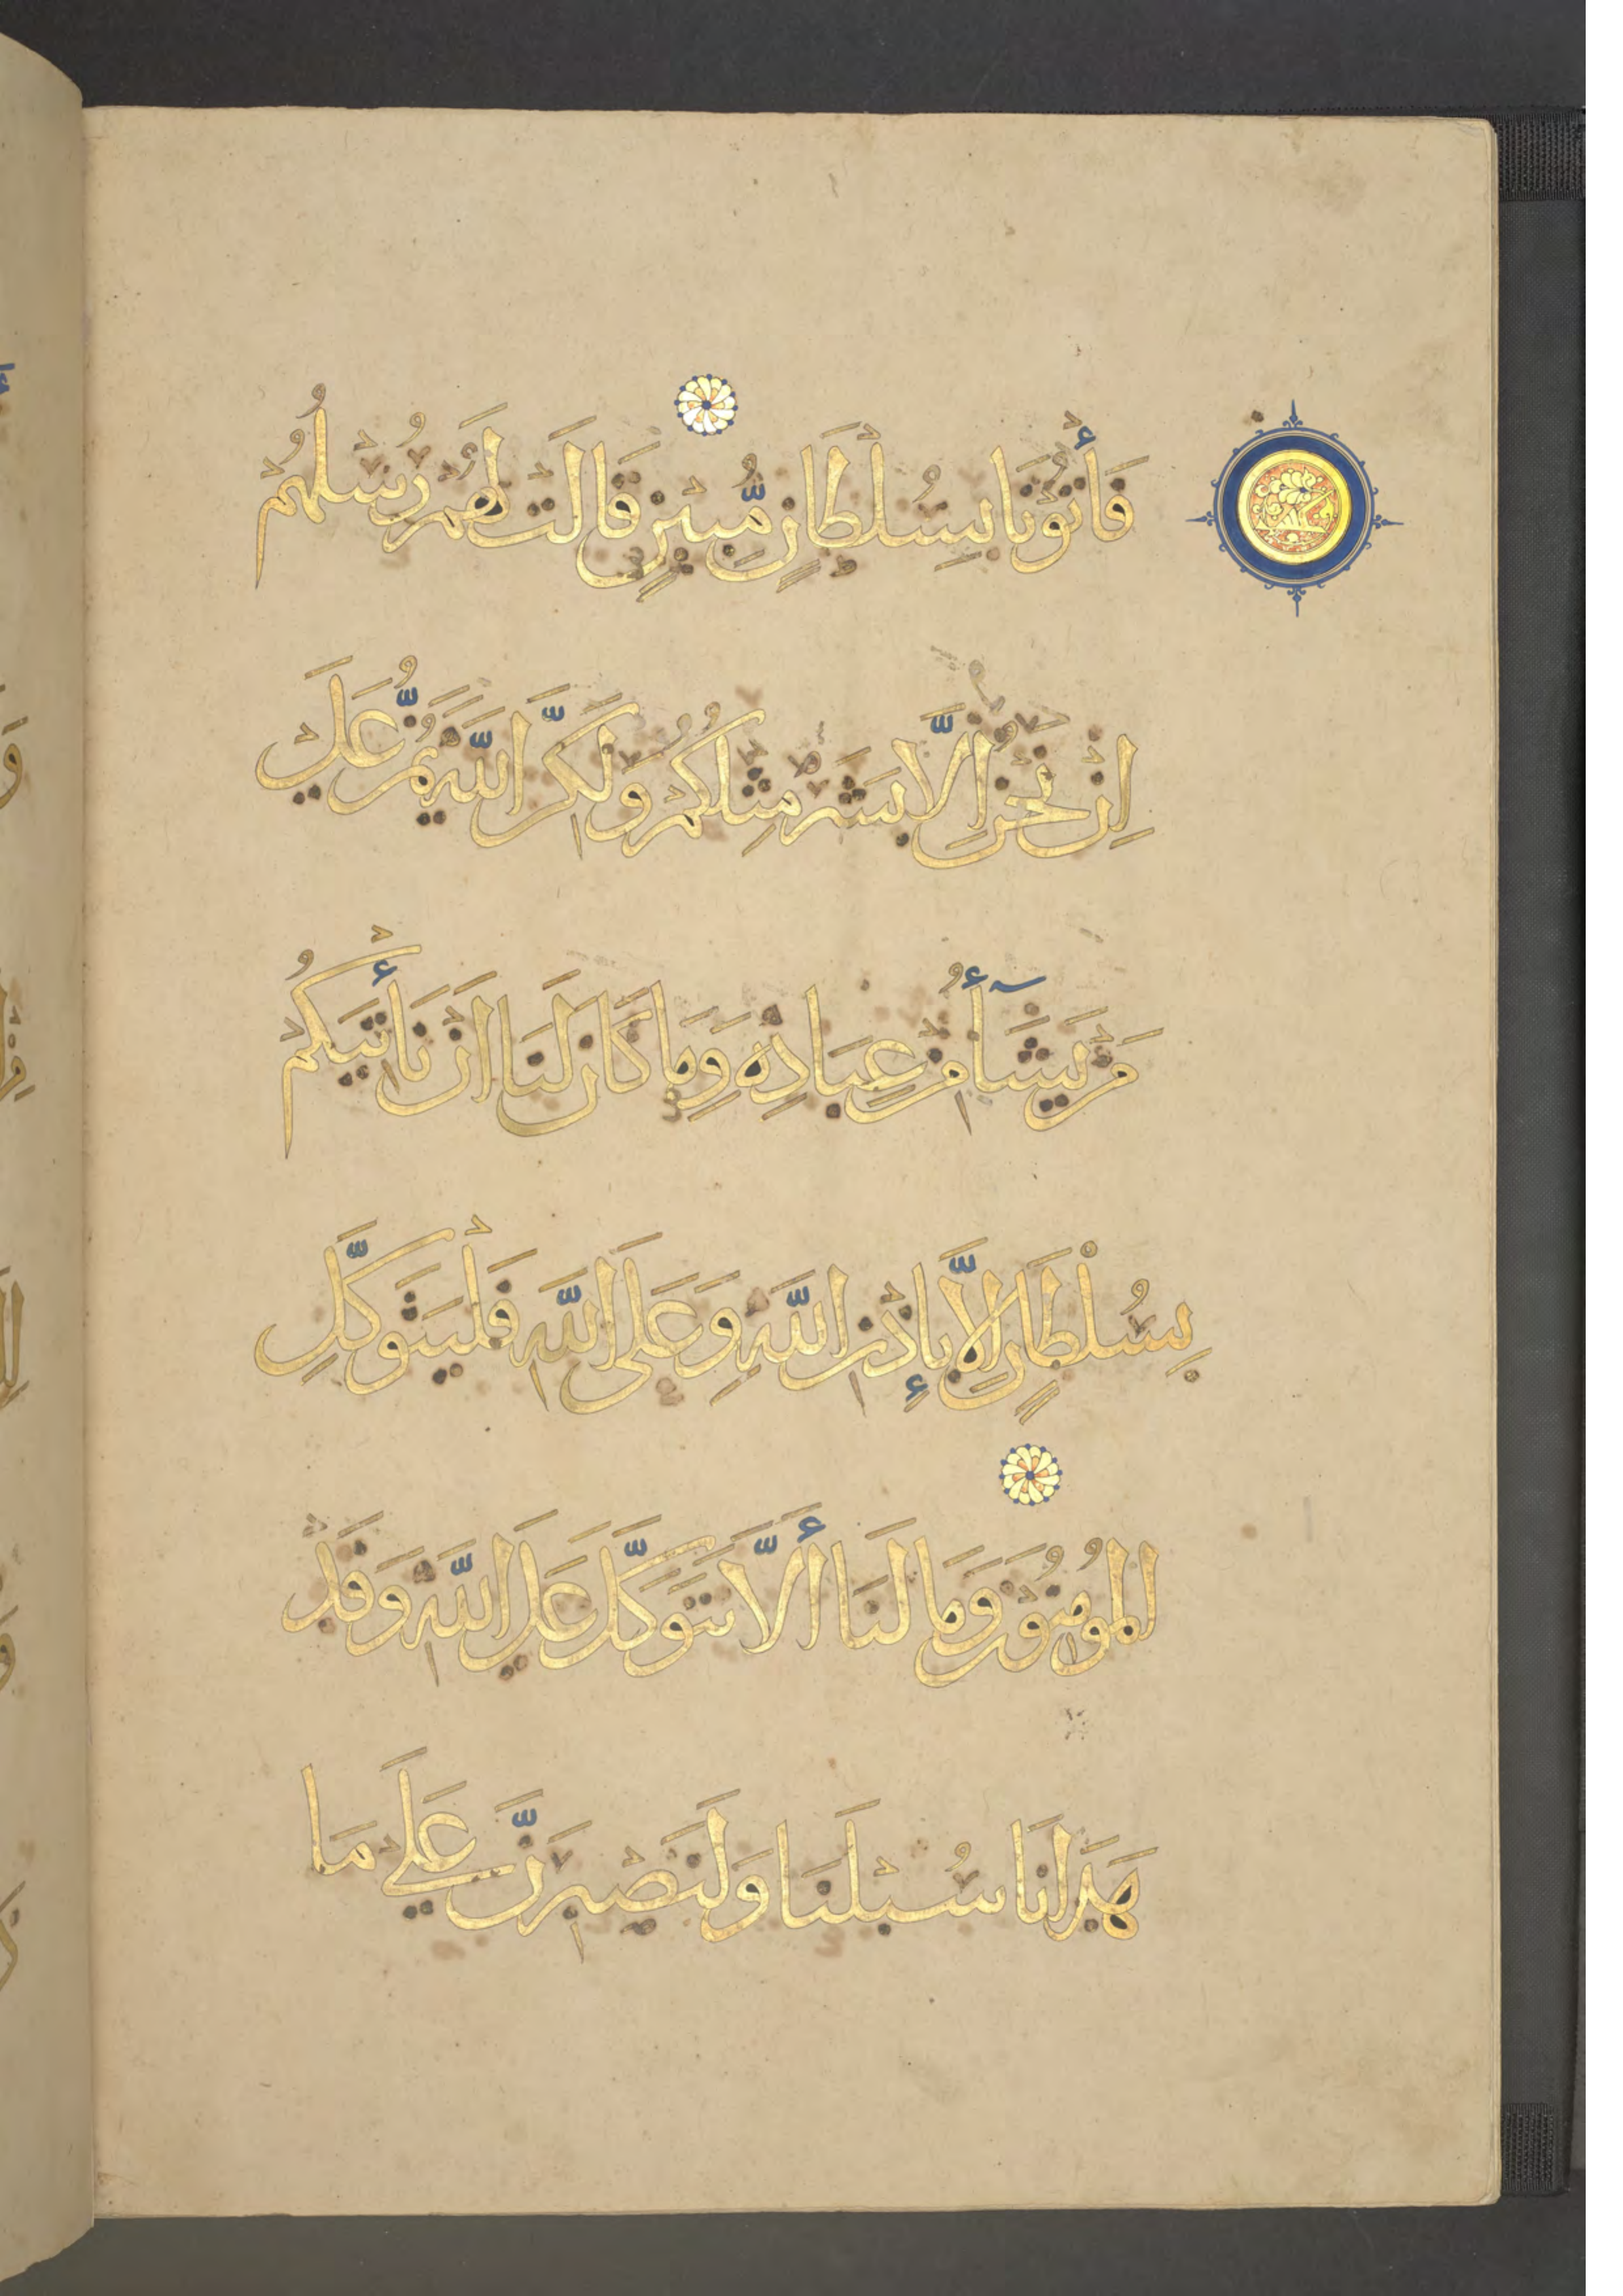 فَأْتُونَا بِسُلْطَانٍ مُّبِينٍ قَالَتْ لَهُمْ رُسُلُهُمْ
اِنْ نَحْنُ اِلَّا بَشَرٌ مِثْلُكُمْ وَلَكِنَّ اللَّهَ يَمُنُّ عَلَى
مَنْ يَشَآءُ مِنْ عِبَادِهِ وَمَا كَانَ لَنَا اَنْ نَأْتِيَكُمْ
بِسُلْطَانٍ اِلَّا بِإِذْنِ اللَّهِ وَعَلَى اللَّهِ فَلْيَتَوَكَّلِ
الْمُومِنُونَ وَمَا لَنَا أَلَّا نَتَوَكَّلَ عَلَى اللَّهِ وَقَدْ
هَدَانَا سُبْلَنَا وَلَنَصْبِرَنَّ عَلَى مَا